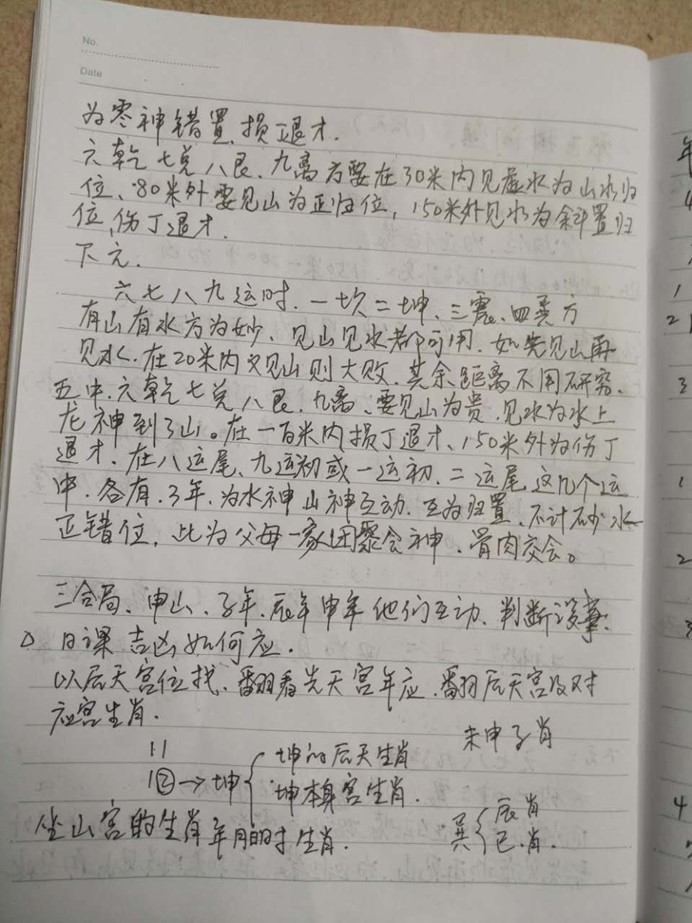 No.
Date
为零神错置、损退才.
六乾七兑八艮、九离方要在30米内见虚水为山水归
位、80米外要见山为正归位, 150米外见水为余斗置归
位, 伤丁退才.
下元.
六七八九运时. 一坎二坤、三震、四巽方
有山有水方为妙、见山见水都可用. 如先见山再
见水. 在20米内又见山则大败. 其余距离不用研究.
五中. 六乾七兑八艮. 九离、要见山为贵. 见水为水上
龙神到了山。在一百米内损丁退才、150米外为伤丁
退才. 在八运尾、九运初或一运初. 二运尾这几个运
中. 各有. 3年. 为水神山神互动. 互为归置. 不计砂水
正错位, 此为父母一家团聚会神、骨肉交会。
三合局、申山、子年. 辰年申年他们互动. 判断没事.
日课吉凶如何应.
以后天宫位找. 翻看先天宫年应. 翻后天宫及对
应宫生肖.
未申子肖
11
12→坤 坤的后天生肖
坤本身宫生肖.
坐山宫的生肖年月的时生肖.
巽 辰肖
巳肖.
年
4
1
2
3
1
2
3
4